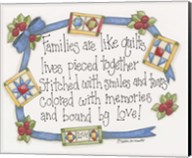 Families are like quilts
lives pieced together
Stitched with smiles and tears
colored with memories
and bound by love!